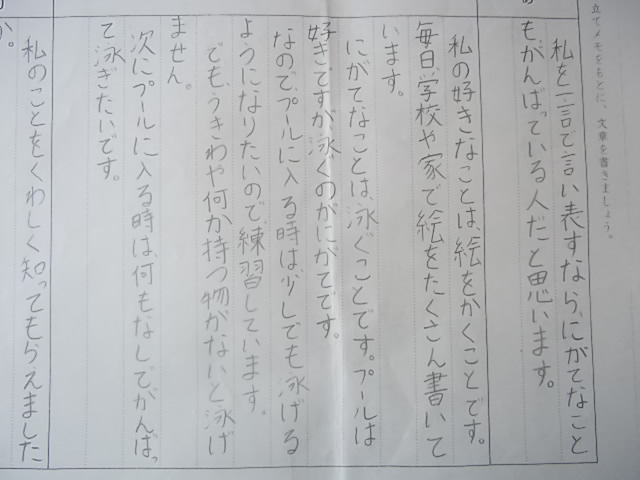 立てメモをもとに、文章を書きましょう。
私を一言で言い表すなら、にがてなこと
もがんばっている人だと思います。
私の好きなことは、絵をかくことです。
毎日、学校や家で絵をたくさん書いて
います。
にがてなことは、泳ぐことです。プールは
好きですが、泳ぐのがにがてです。
なので、プールに入る時は、少しでも泳げる
ようになりたいので、練習しています。
でも、うきわや何か持つ物がないと泳げ
ません。
次にプールに入る時は、何もなしでがんばっ
て泳ぎたいです。
私のことをくわしく知ってもらえました
か。